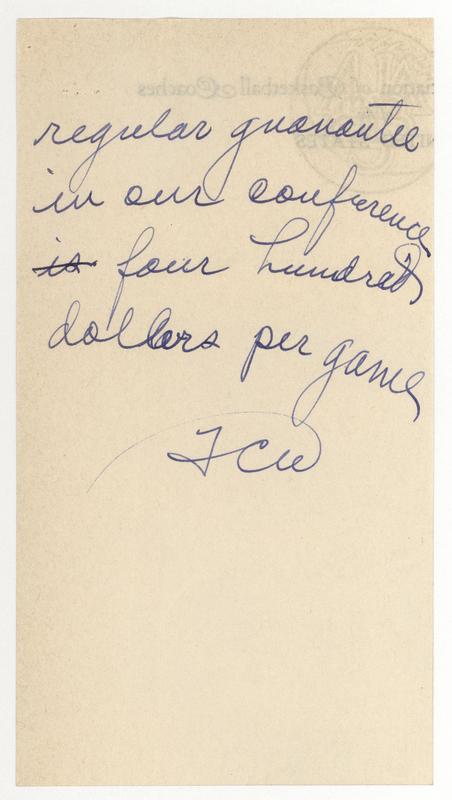 regular guarantee
in our conference
is four hundred
dollars per game
FCW